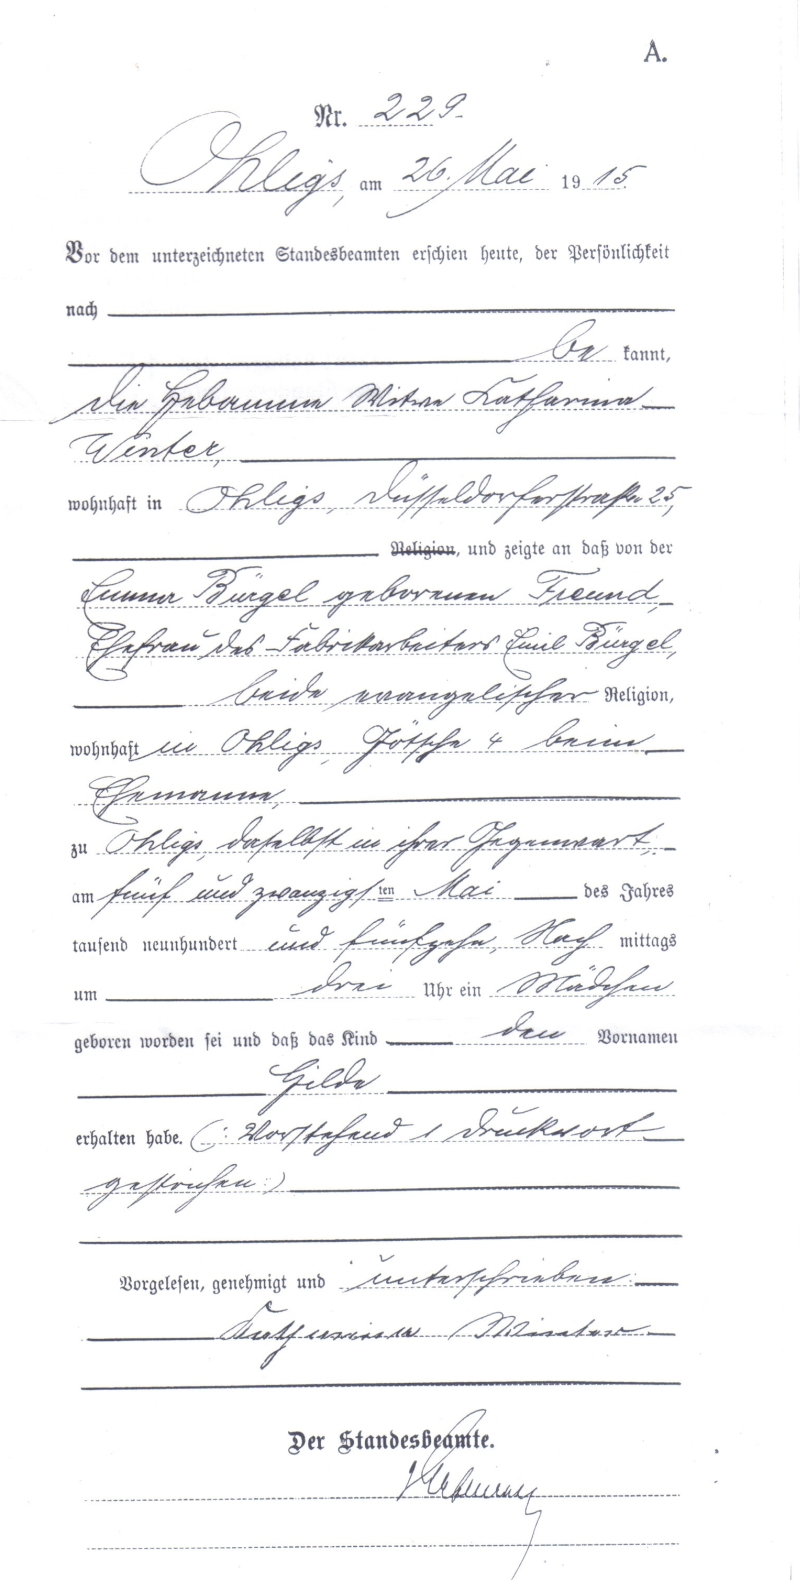 A.
Nr. 229.
Ohligs, am 26. Mai 1915.
Vor dem unterzeichneten Standesbeamten erschien heute, der Persönlichkeit
nach
be kannt,
die Hebamme Witwe Katharina
Winter,
wohnhaft in Ohligs, Düsseldorferstraße 25,
Religion, und zeigte an daß von der
Emma Bürgel geborenen Freund,
Ehefrau des Fabrikarbeiters Emil Bürgel,
beide evangelischer Religion,
wohnhaft in Ohligs, 4 beim
Ehemanne,
zu Ohligs, daselbst in ihrer Gegenwart,
am fünf und zwanzigsten Mai des Jahres
tausend neunhundert und fünfzehn, Nach mittags
um drei Uhr ein Mädchen
geboren worden sei und daß das Kind den Vornamen
Hilde
erhalten habe. (: Vorstehend 1 Druckwort
gestrichen :)
Vorgelesen, genehmigt und unterschrieben:
Katharina Winter
Der Standesbeamte.